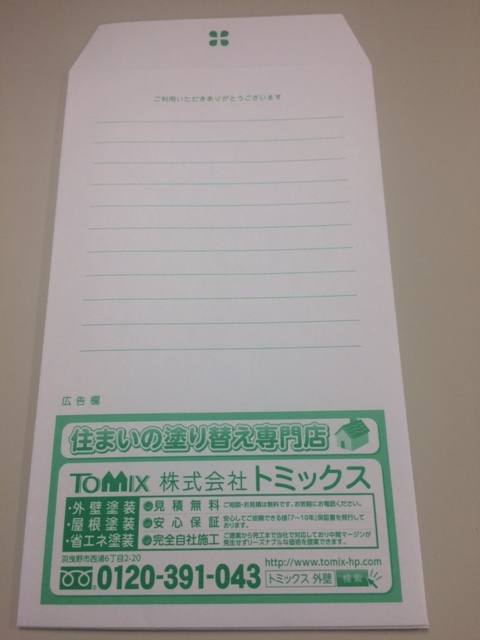 ご利用いただきありがとうございます
広告欄
住まいの塗り替え専門店
TOMIX 株式会社トミックス
・外壁塗装 ●見積無料 ご相談・お見積は無料です。お気軽にお電話ください。
・屋根塗装 ●安心保証 安心してご依頼できる様「7〜10年」保証書を発行しております。
・省エネ塗装 ●完全自社施工 ご提案から完工まで当社で対応しており中間マージンが発生せずリーズナブルな価格を提案できます。
羽曳野市西浦6丁目2-20
http://www.tomix-hp.com
0120-391-043 トミックス 外壁 検索